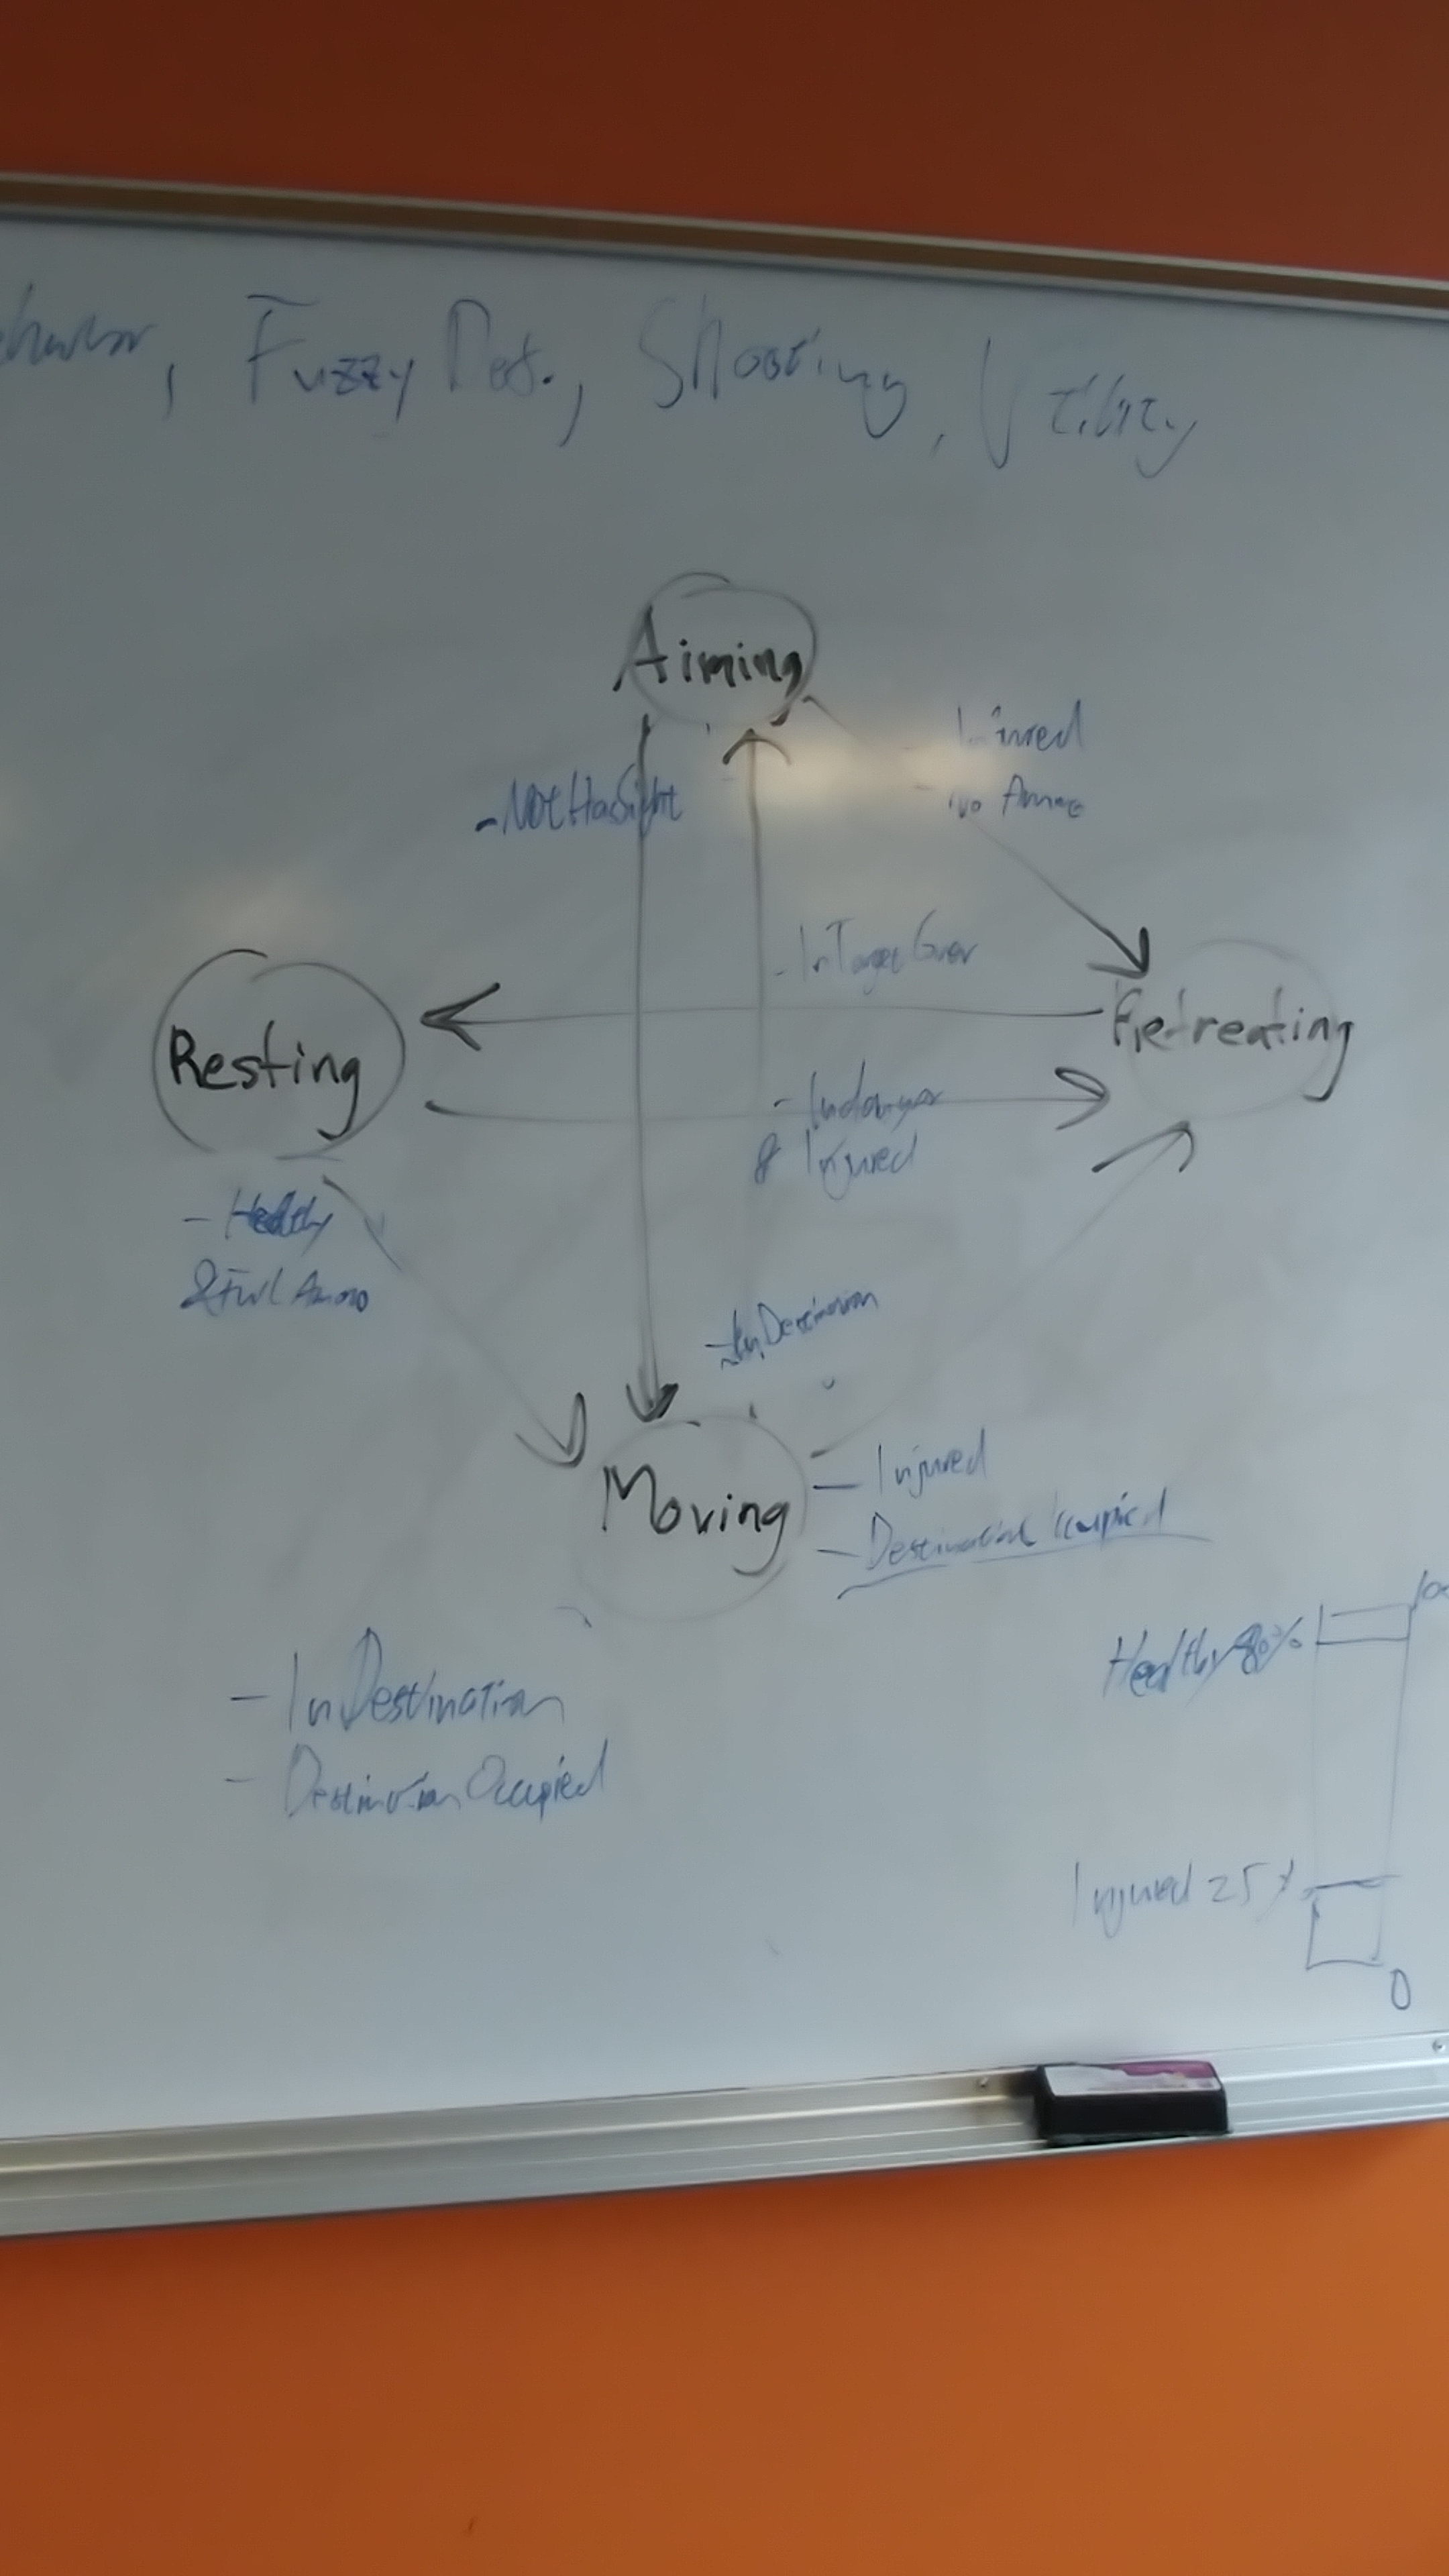 , Fuzzy Det., Shooting, Utility
Aiming
- Injured
- No Ammo
- NotHasSight
- InTargetCover
Resting
Retreating
- Indanger
& Injured
- Healthy
& Full Ammo
- InDestination
Moving
- Injured
- Destination Occupied
- InDestination
- Destination Occupied
Healthy 80%
Injured 25%
0